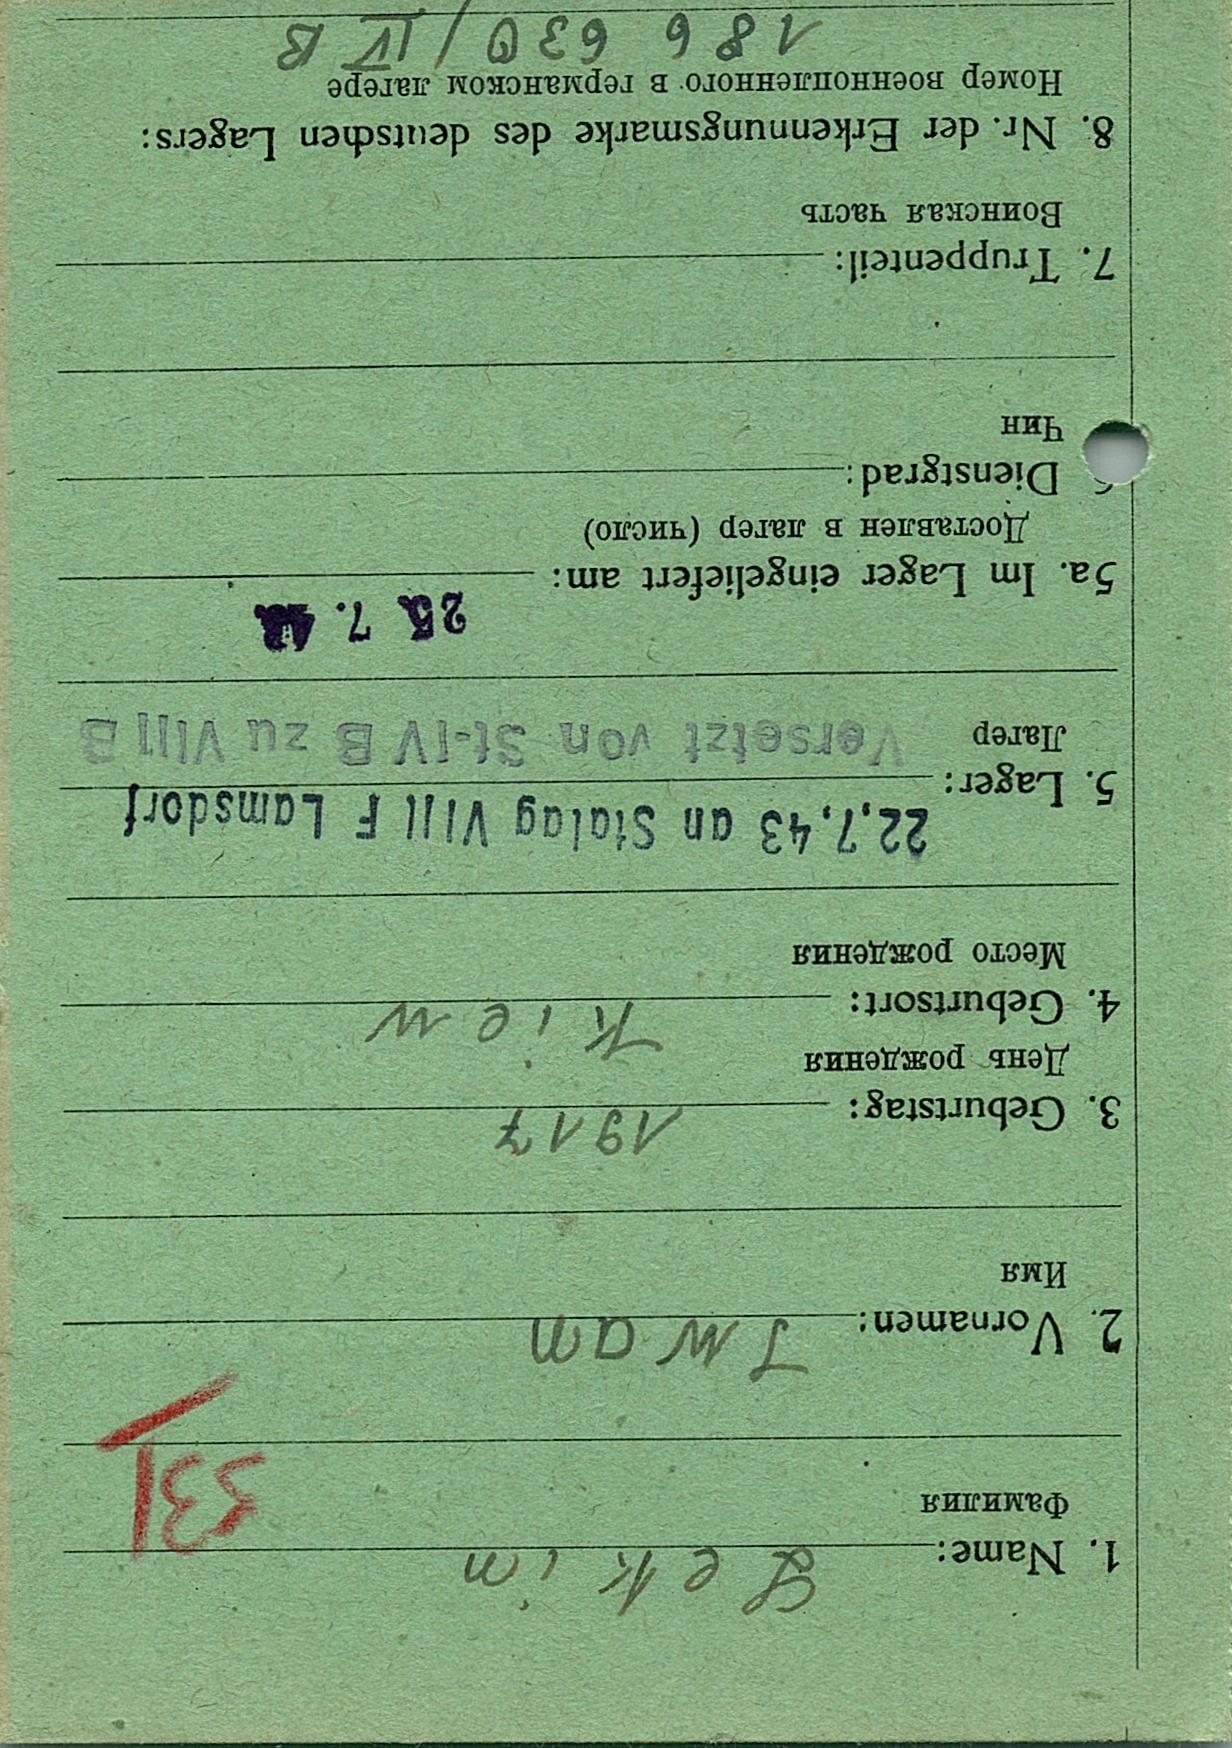 Lekim
1. Name:
Фамилия
531
Iwan
2. Vornamen:
Имя
1917
3. Geburtstag:
День рождения
Kiew
4. Geburtsort:
Место рождения
22.7.43 an Stalag VIII F Lamsdorf
5. Lager:
Лагерь
Versetzt von St-IV B zu VIII B
25. 7.
5a. Im Lager eingeliefert am:
Доставлен в лагер (число)
Dienstgrad:
Чин
7. Truppenteil:
Воинская часть
8. Nr. der Erkennungsmarke des deutschen Lagers:
Номер военнопленного в германском лагере
186 630 / IV B